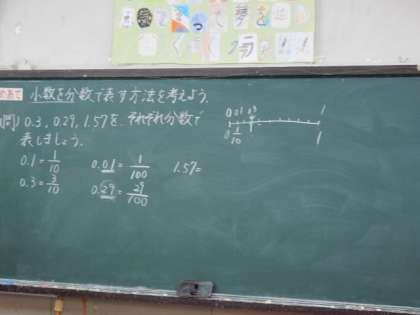 めあて 小数を分数で表す方法を考えよう。
(問) 0.3, 0.29, 1.57を それぞれ分数で
表しましょう。
0.1=1/10
0.3=3/10
0.01=1/100
0.29=29/100
1.57=
0 0.1 0.3 1
0 1/10 1